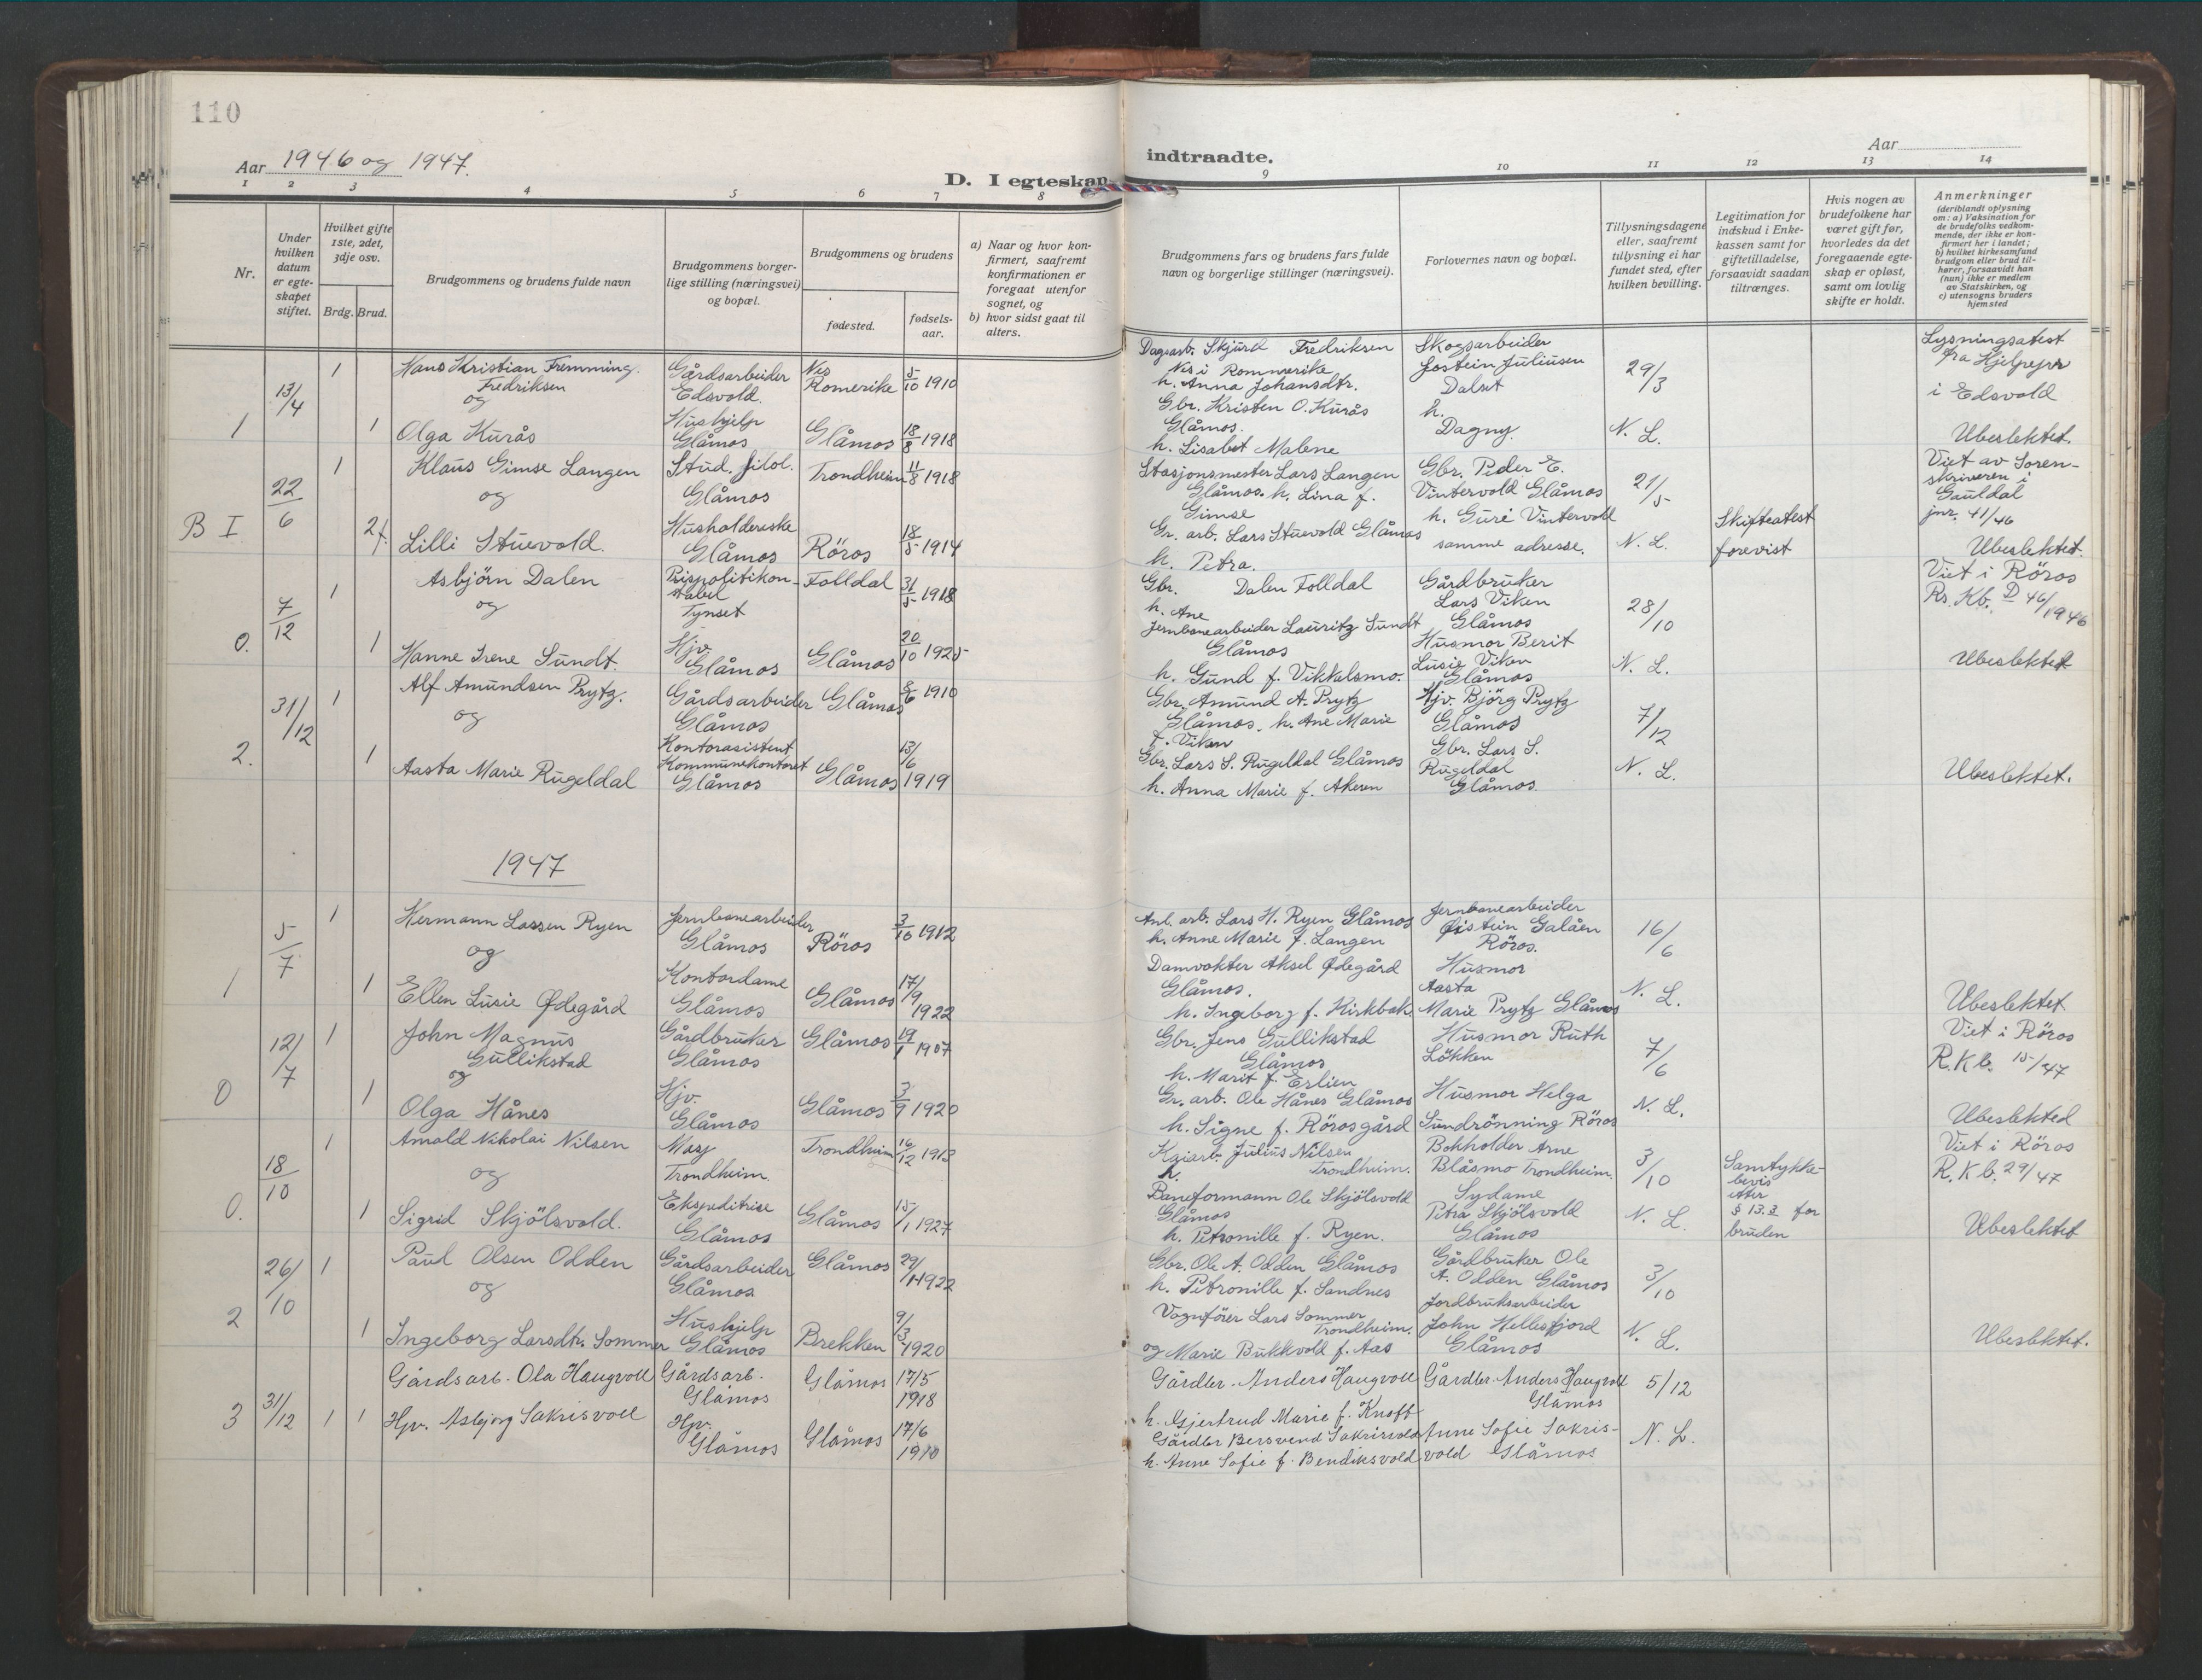 110
Aar 1946 og 1947.
D. Egteskap
1 2 3 4 5 6 7 8
Nr.
Under hvilken datum er egteskapet stiftet.
Hvilket gifte 1ste, 2det, 3dje osv.
Brdg. Brud.
Brudgommens og brudens fulde navn
Brudgommens borgerlige stilling (næringsvei) og bopæl.
Brudgommens og brudens
fødested.
fødselsaar.
a) Naar og hvor konfirmert, saafremt konfirmationen er foregaat utenfor sognet, og
b) hvor sidst gaat til alters.
1
13/4
1
Hans Kristian Fremming.
Fredriksen
og
Gårdsarbeider
Edsvold.
Nes
Romerike
5/10 1910
1
Olga Kurås
Hushjelp
Glåmos
Glåmos
18/8 1918
B I
22/6
1
Klaus Gimse Langen
og
Stud. filol.
Glåmos
Trondheim
11/8 1918
2
Lilli Stuevold.
Husholderske
Glåmos
Röros
18/5 1914
0.
7/12
1
Asbjörn Dalen
og
Prispolitikonstabel
Tynset
Folldal
31/5 1918
1
Hanne Irene Sundt.
Hjv.
Glåmos
Glåmos
20/10 1925
2.
31/12
1
Alf Amundsen Prytz.
og
Gårdsarbeider
Glåmos
Glåmos
1910
1
Aasta Marie Rugeldal
Kontorasistent
Kommunekontoret
Glåmos
Glåmos
13/6
1919
1947
1
5/7
1
Hermann Lassen Ryen
og
Jernbanearbeider
Glåmos
Röros
3/10 1912
1
Ellen Lusie Ødegård
Kontordame
Glåmos
Glåmos
17/9
1922
0
12/7
1
John Magnus
Gullikstad
og
Gårdbruker
Glåmos
Glåmos
19/1 1907
1
Olga Hånes
Hjv.
Glåmos
Glåmos
3/9 1920
0.
18/10
1
Arnold Nikolai Nilsen
og
Trondheim.
Trondheim
16/12 1913
1
Sigrid Skjölsvold.
Ekspeditrise
Glåmos
Glåmos
15/1 1927
2
26/10
1
Paul Olsen Odden
og
Gårdsarbeider
Glåmos
Glåmos
29/11 1922
1
Ingeborg Larsdtr. Sommer
Hushjelp
Glåmos
Brekken
9/3
1920
3
31/12
1 1
Gårdsarb. Ola Haugvoll
Gårdsarb.
Glåmos
Glåmos
17/5
1918
Hjv. Asbjørg Sakrisvoll
Hjv.
Glåmos
Glåmos
17/6
1910
indtraadte.
Aar
9 10 11 12 13 14
Brudgommens fars og brudens fars fulde navn og borgerlige stillinger (næringsvei).
Forlovernes navn og bopæl.
Tillysningsdagene eller, saafremt tillysning ei har fundet sted, efter hvilken bevilling.
Legitimation for indskud i Enkekassen samt for giftetilladelse, forsaavidt saadan tiltrænges.
Hvis nogen av brudefolkene har været gift før, hvorledes da det foregaaende egteskap er opløst, samt om lovlig skifte er holdt.
Anmerkninger
(deriblandt oplysning om: a) Vaksination for de brudefolks vedkommende, der ikke er konfirmert her i landet; b) hvilket kirkesamfund brudgom eller brud tilhører, forsaavidt han (hun) ikke er medlem av Statskirken, og c) utensogns bruders hjemsted
Dagarb. Skjurd Fredriksen
Nes i Rommerike
h. Anna Johansdtr.
Skogsarbeider
Jostein Juliusen
Dalset
29/3
Lysningsatest
fra Hjelpepr
i Edsvold
Gbr. Kristen O. Kurås
Glåmos.
h. Lisabet Malene
h.
Dagny.
N. L.
Ubeslektet.
Stasjonsmester Lars Langen
Glåmos. h. Lina f.
Gimse
Gbr. Peder E.
Vintervold Glåmos
21/5
Viet av Sorenskriveren i
Gauldal
jnr. 41/46
Gr. arb. Lars Stuevold Glåmos
h. Petra.
h. Guri Vintervold
samme adresse.
N. L.
Skifteatest
forevist
Ubeslektet.
Gbr. Dalen Folldal
h. Ane
Gårdbruker
Lars Viken
Glåmos
28/10
Viet i Röros
Rs. Kb. D 46/1946
Jernbanearbeider Lauritz Sundt
Glåmos
h. Gund f. Vikkalsmo.
Husmor Berit
Lusie Viken
Glåmos
N. L.
Ubeslektet
Gbr. Amund A. Prytz
Glåmos. h. Ane Marie
f. Viken
Hjv. Björg Prytz
Glåmos
7/12
Gbr. Lars S. Rugeldal Glåmos
h. Anna Marie f. Akeren
Gbr. Lars S.
Rugeldal
Glåmos.
N. L.
Ubeslektet.
Anl. arb. Lars H. Ryen Glåmos
h. Anne Marie f. Langen
Jernbanearbeider
Øistein Galåen
Röros.
16/6
Damvokter Aksel Ødegård
Glåmos.
h. Ingeborg f. Kirkbak.
Husmor
Aasta
Marie Prytz Glåmos
N. L.
Ubeslektet.
Gbr. Jens Gullikstad
Glåmos
h. Marit f. Erlien
Husmor Ruth
Løkken
7/6
Viet i Röros
R.K.b. 15/47
Gr. arb. Ole Hånes Glåmos
h. Signe f. Rörosgård
Husmor Helga
Sundrönning Röros
N. L.
Ubeslekted
Kaiarb. Julius Nilsen
h. Trondheim.
Bokholder Arne
Blåsmo Trondheim.
3/10
Samtykkebevis
etter
§ 13.3 for
bruden
Viet i Röros
R.K.b. 29/47
Baneformann Ole Skjölsvold
Glåmos
h. Petronille f. Ryen.
Sydame
Petra Skjölsvold
Glåmos
N. L.
Ubeslektet
Gbr. Ole A. Odden Glåmos
h. Petronille f. Sandnes
Gårdbruker Ole
A. Odden Glåmos
3/10
Vognfører Lars Sommer
Trondheim.
og Marie Bukkvold f. Aas
Jordbruksarbeider
John Hellesfjord
Glåmos
N. L.
Ubeslektet.
Gårdbr. Anders Haugvoll
h. Gjertrud Marie f. Knoft
Gårdbr. Anders Haugvoll
Glåmos
5/12
Gårdbr Bersvend Sakrisvold
h. Anne Sofie f. Bendiksvold
Anne Sofie Sakrisvold Glåmos
N. L.